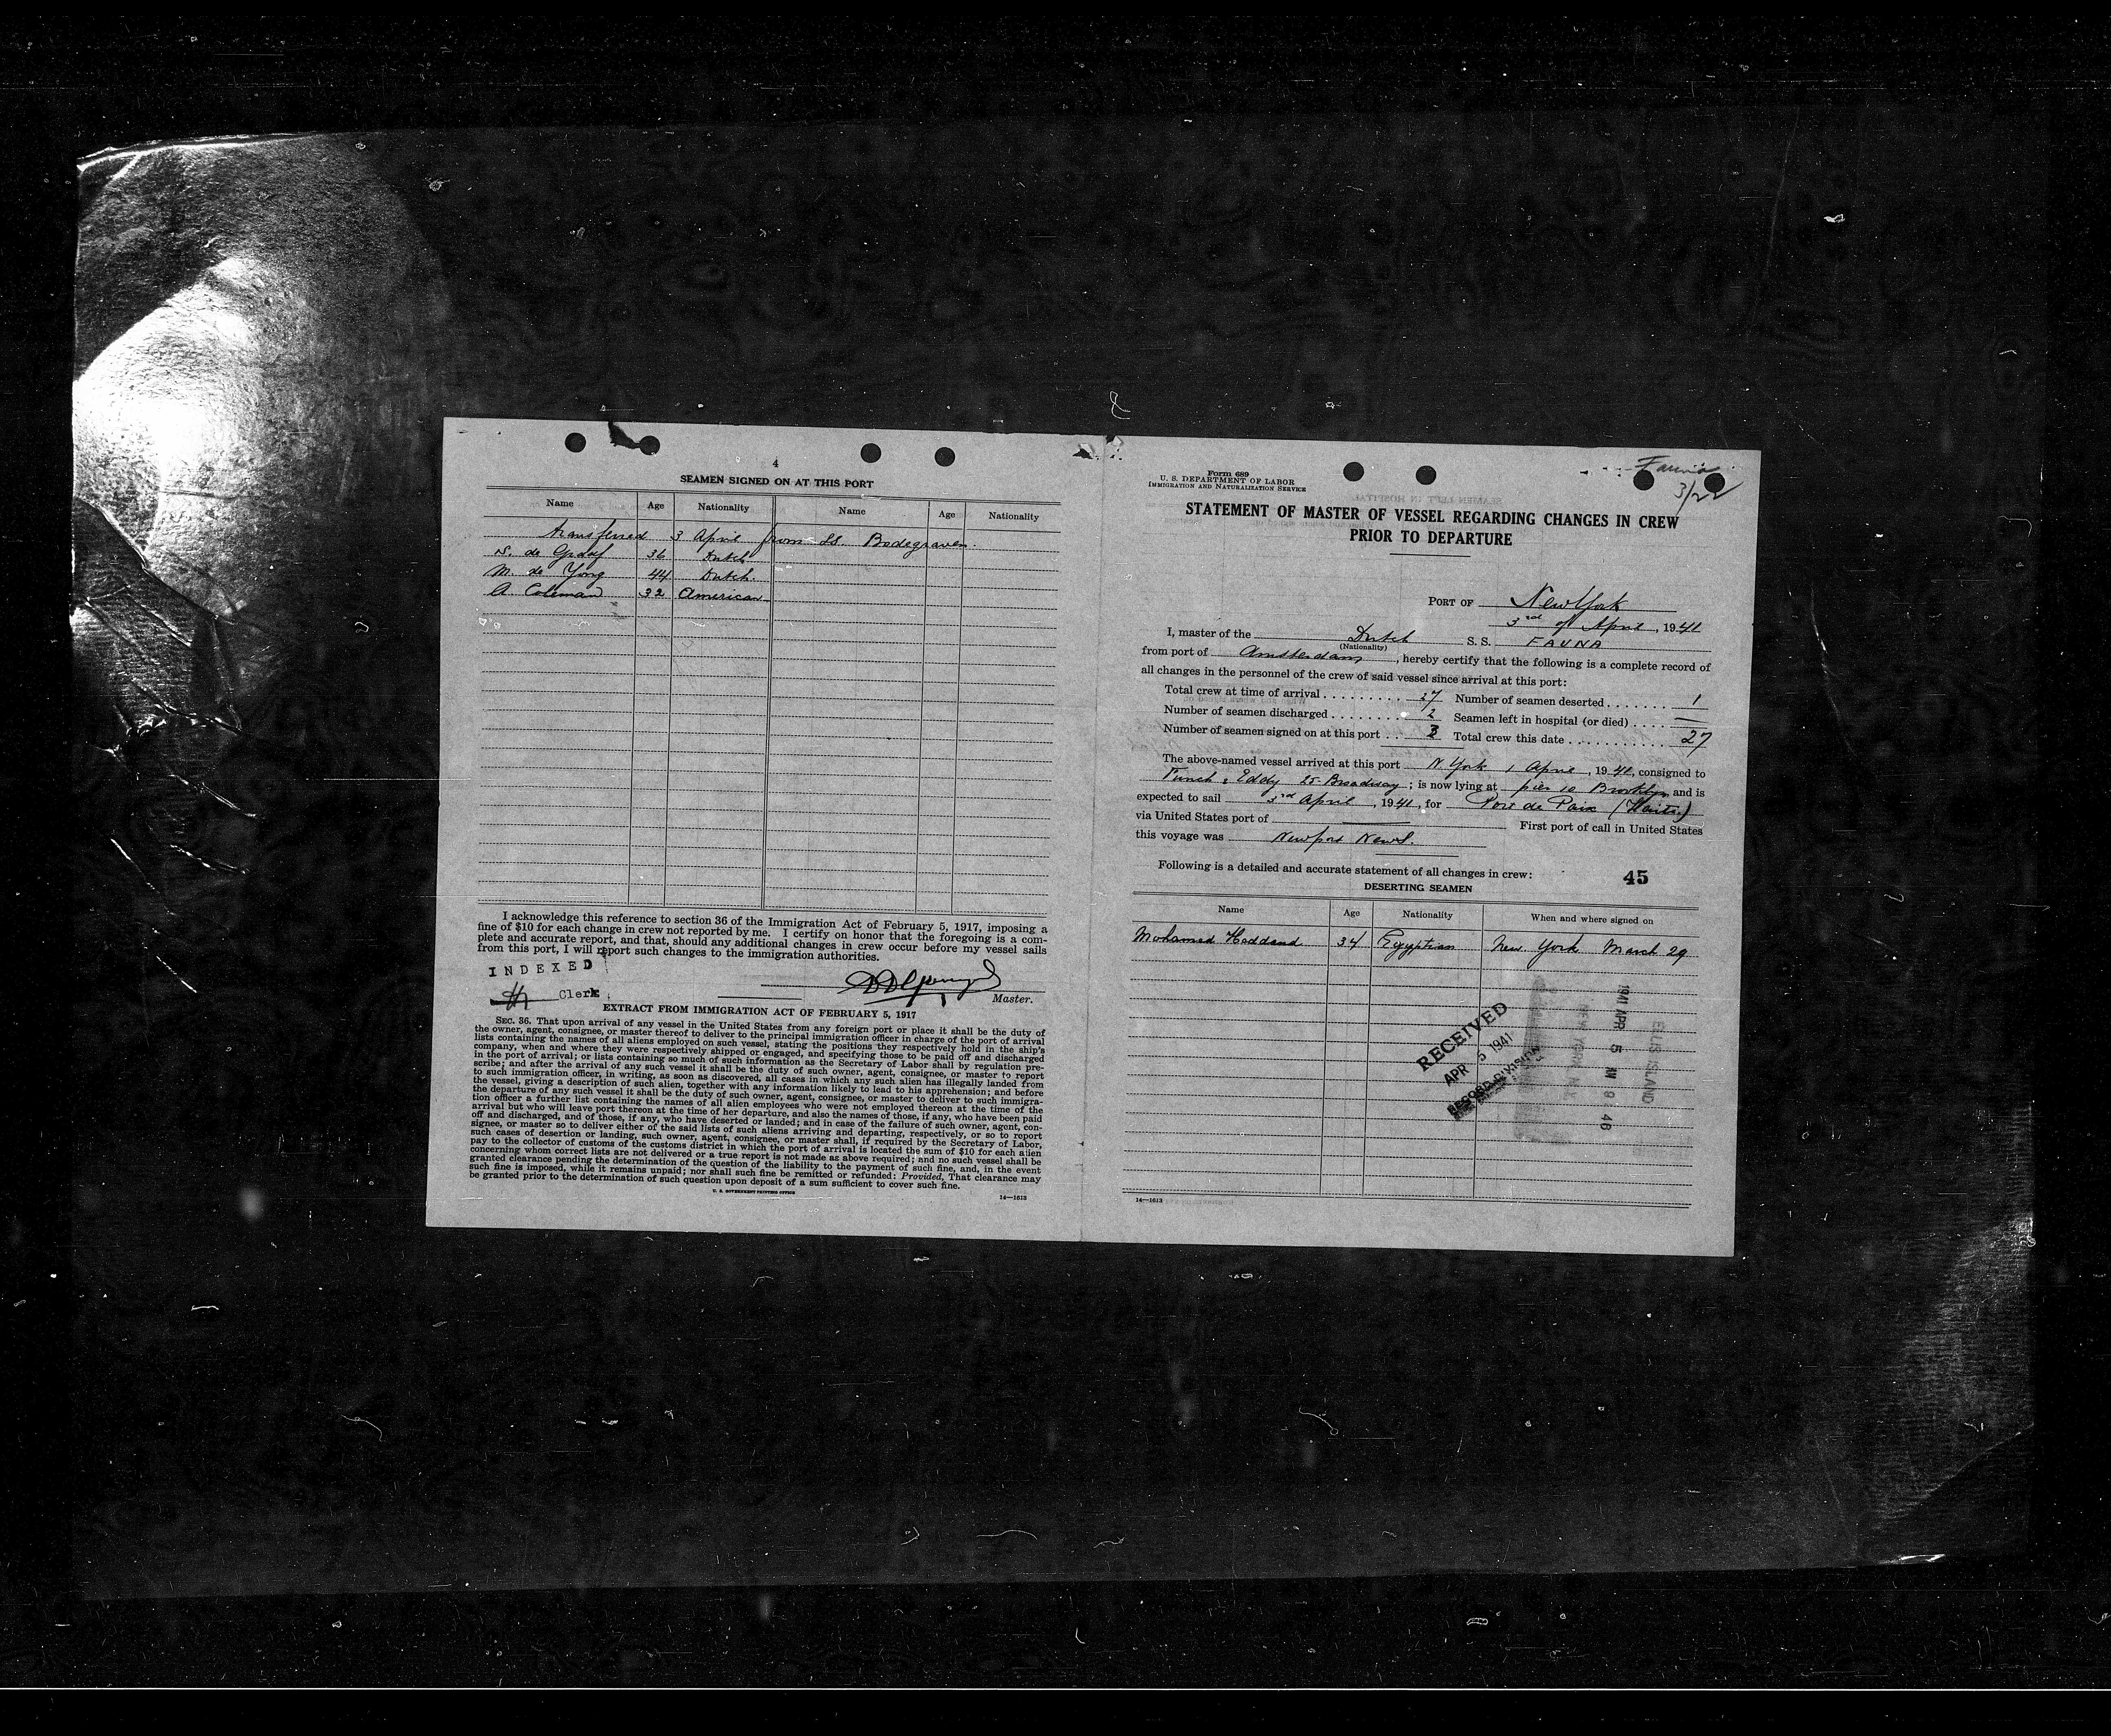 4
SEAMEN SIGNED ON AT THIS PORT
Name Age Nationality Name Age Nationality
transferred 3 April from ss. Bodegraven.
N. de Graaf 36 Dutch
M. de Yong 44 Dutch.
A. Coleman 32 American
I acknowledge this reference to section 36 of the Immigration Act of February 5, 1917, imposing a
fine of $10 for each change in crew not reported by me. I certify on honor that the foregoing is a com-
plete and accurate report, and that, should any additional changes in crew occur before my vessel sails
from this port, I will report such changes to the immigration authorities.
INDEXED
Clerk
Master.
EXTRACT FROM IMMIGRATION ACT OF FEBRUARY 5, 1917
SEC. 36. That upon arrival of any vessel in the United States from any foreign port or place it shall be the duty of
the owner, agent, consignee, or master thereof to deliver to the principal immigration officer in charge of the port of arrival
lists containing the names of all aliens employed on such vessel, stating the positions they respectively hold in the ship's
company, when and where they were respectively shipped or engaged, and specifying those to be paid off and discharged
in the port of arrival; or lists containing so much of such information as the Secretary of Labor shall by regulation pre-
scribe; and after the arrival of any such vessel it shall be the duty of such owner, agent, consignee, or master to report
to such immigration officer, in writing, as soon as discovered, all cases in which any such alien has illegally landed from
the vessel, giving a description of such alien, together with any information likely to lead to his apprehension; and before
the departure of any such vessel it shall be the duty of such owner, agent, consignee, or master to deliver to such immigra-
tion officer a further list containing the names of all alien employees who were not employed thereon at the time of the
arrival but who will leave port thereon at the time of her departure, and also the names of those, if any, who have been paid
off and discharged, and of those, if any, who have deserted or landed; and in case of the failure of such owner, agent, con-
signee, or master so to deliver either of the said lists of such aliens arriving and departing, respectively, or so to report
such cases of desertion or landing, such owner, agent, consignee, or master shall, if required by the Secretary of Labor,
pay to the collector of customs of the customs district in which the port of arrival is located the sum of $10 for each alien
concerning whom correct lists are not delivered or a true report is not made as above required; and no such vessel shall be
granted clearance pending the determination of the question of the liability to the payment of such fine, and, in the event
such fine is imposed, while it remains unpaid; nor shall such fine be remitted or refunded: Provided, That clearance may
be granted prior to the determination of such question upon deposit of a sum sufficient to cover such fine.
U. S. GOVERNMENT PRINTING OFFICE 14—1613
Fauna
3/22
Form 689
U. S. DEPARTMENT OF LABOR
IMMIGRATION AND NATURALIZATION SERVICE
STATEMENT OF MASTER OF VESSEL REGARDING CHANGES IN CREW
PRIOR TO DEPARTURE
PORT OF New York
3rd of April, 1941
I, master of the Dutch S. S. FAUNA
(Nationality)
from port of Amsterdam, hereby certify that the following is a complete record of
all changes in the personnel of the crew of said vessel since arrival at this port:
Total crew at time of arrival 27 Number of seamen deserted 1
Number of seamen discharged 2 Seamen left in hospital (or died) —
Number of seamen signed on at this port 3 Total crew this date 27
The above-named vessel arrived at this port N. York 1 April, 1941, consigned to
Funch, Eddy 25 Broadway; is now lying at pier 10 Brooklyn and is
expected to sail 3rd April, 1941, for Port de Paix (Haiti)
via United States port of First port of call in United States
this voyage was Newport News.
Following is a detailed and accurate statement of all changes in crew: 45
DESERTING SEAMEN
Name Age Nationality When and where signed on
Mohamed Haddand 34 Egyptian New York March 29
RECEIVED
APR 5 1941
RECORD DIVISION
1941 APR 5 AM 9 46
ELLIS ISLAND
NEW YORK, N.Y.
14—1613